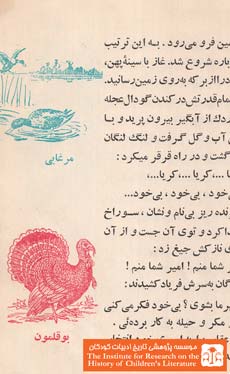 مین فرو می‌رود . به این ترتیب
باره شروع شد. غاز با سینهٔ پهن،
در ازبر که به‌روی زمین رسانید.
تمام قدرتش در کندن گودال عجله
ردك از آبگیر بیرون پرید و با
ی آب و گل گرفت و لنگ لنگان
گشت و در راه قرقر میکرد :
ا ...، کریا ...، کریا ...،
خود ، بی‌خود ، بی‌خود...
رنده ریز بی‌نام ونشان ، سوراخ
دا کرد و توی آن جست و از آن
ای نازکش جیغ زد :
ر شما منم ! امیر شما منم !
گان به‌سرش فریاد کشیدند:
یر ما بشوی؟ بی‌خود فکر می‌کنی
مکر و حیله به کار برده‌ئی .
مرغابی
بوقلمون
موسسه پژوهشی تاریخ ادبیات کودکان
The Institute for Research on the
History of Children's Literature